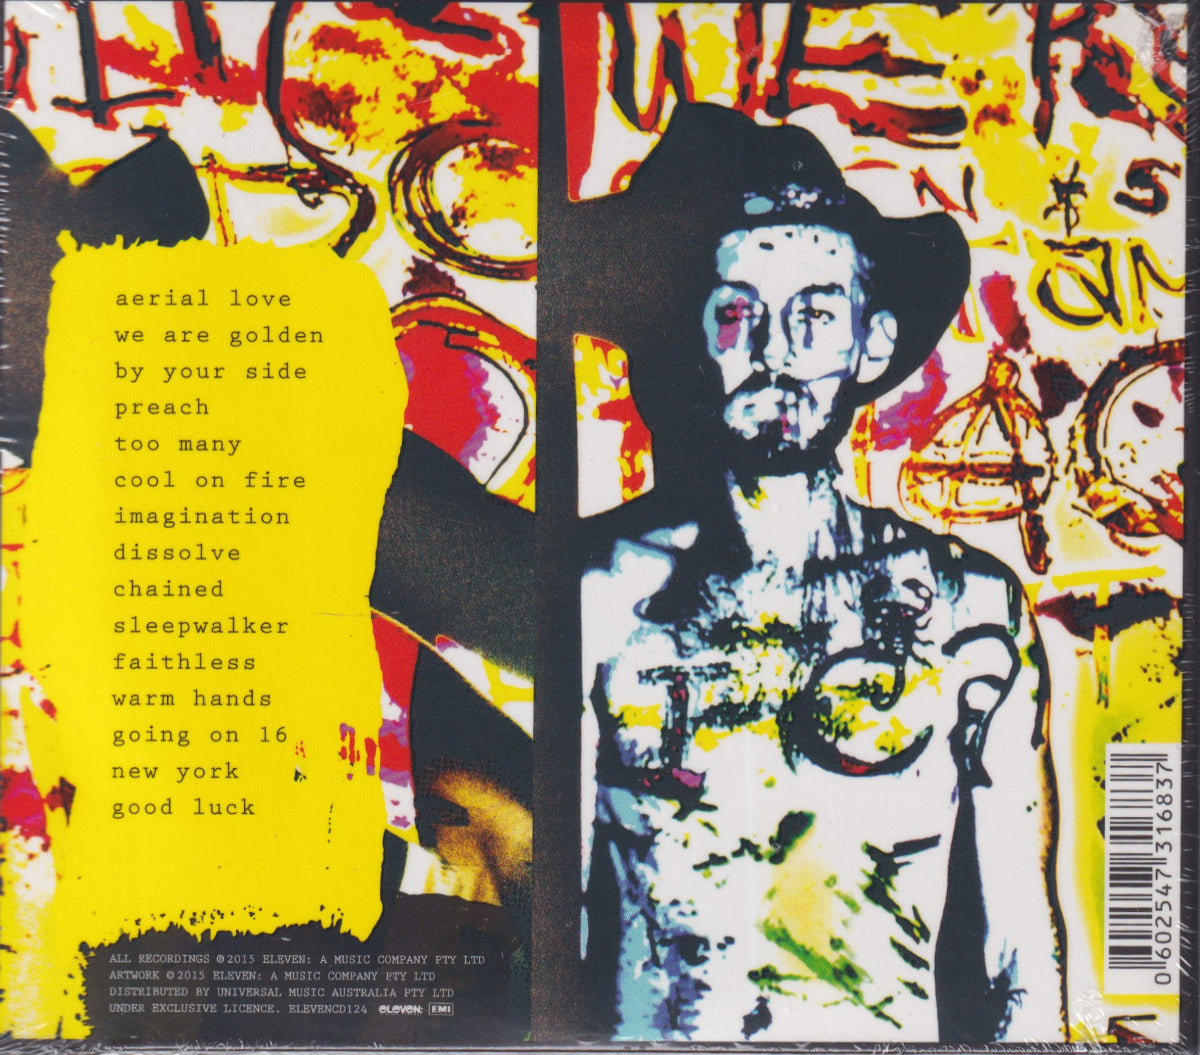 aerial love
we are golden
by your side
preach
too many
cool on fire
imagination
dissolve
chained
sleepwalker
faithless
warm hands
going on 16
new york
good luck
ALL RECORDINGS ℗2015 ELEVEN: A MUSIC COMPANY PTY LTD
ARTWORK ©2015 ELEVEN: A MUSIC COMPANY PTY LTD
DISTRIBUTED BY UNIVERSAL MUSIC AUSTRALIA PTY LTD
UNDER EXCLUSIVE LICENCE. ELEVENCD124 eleven: EMI
0 602547 316837